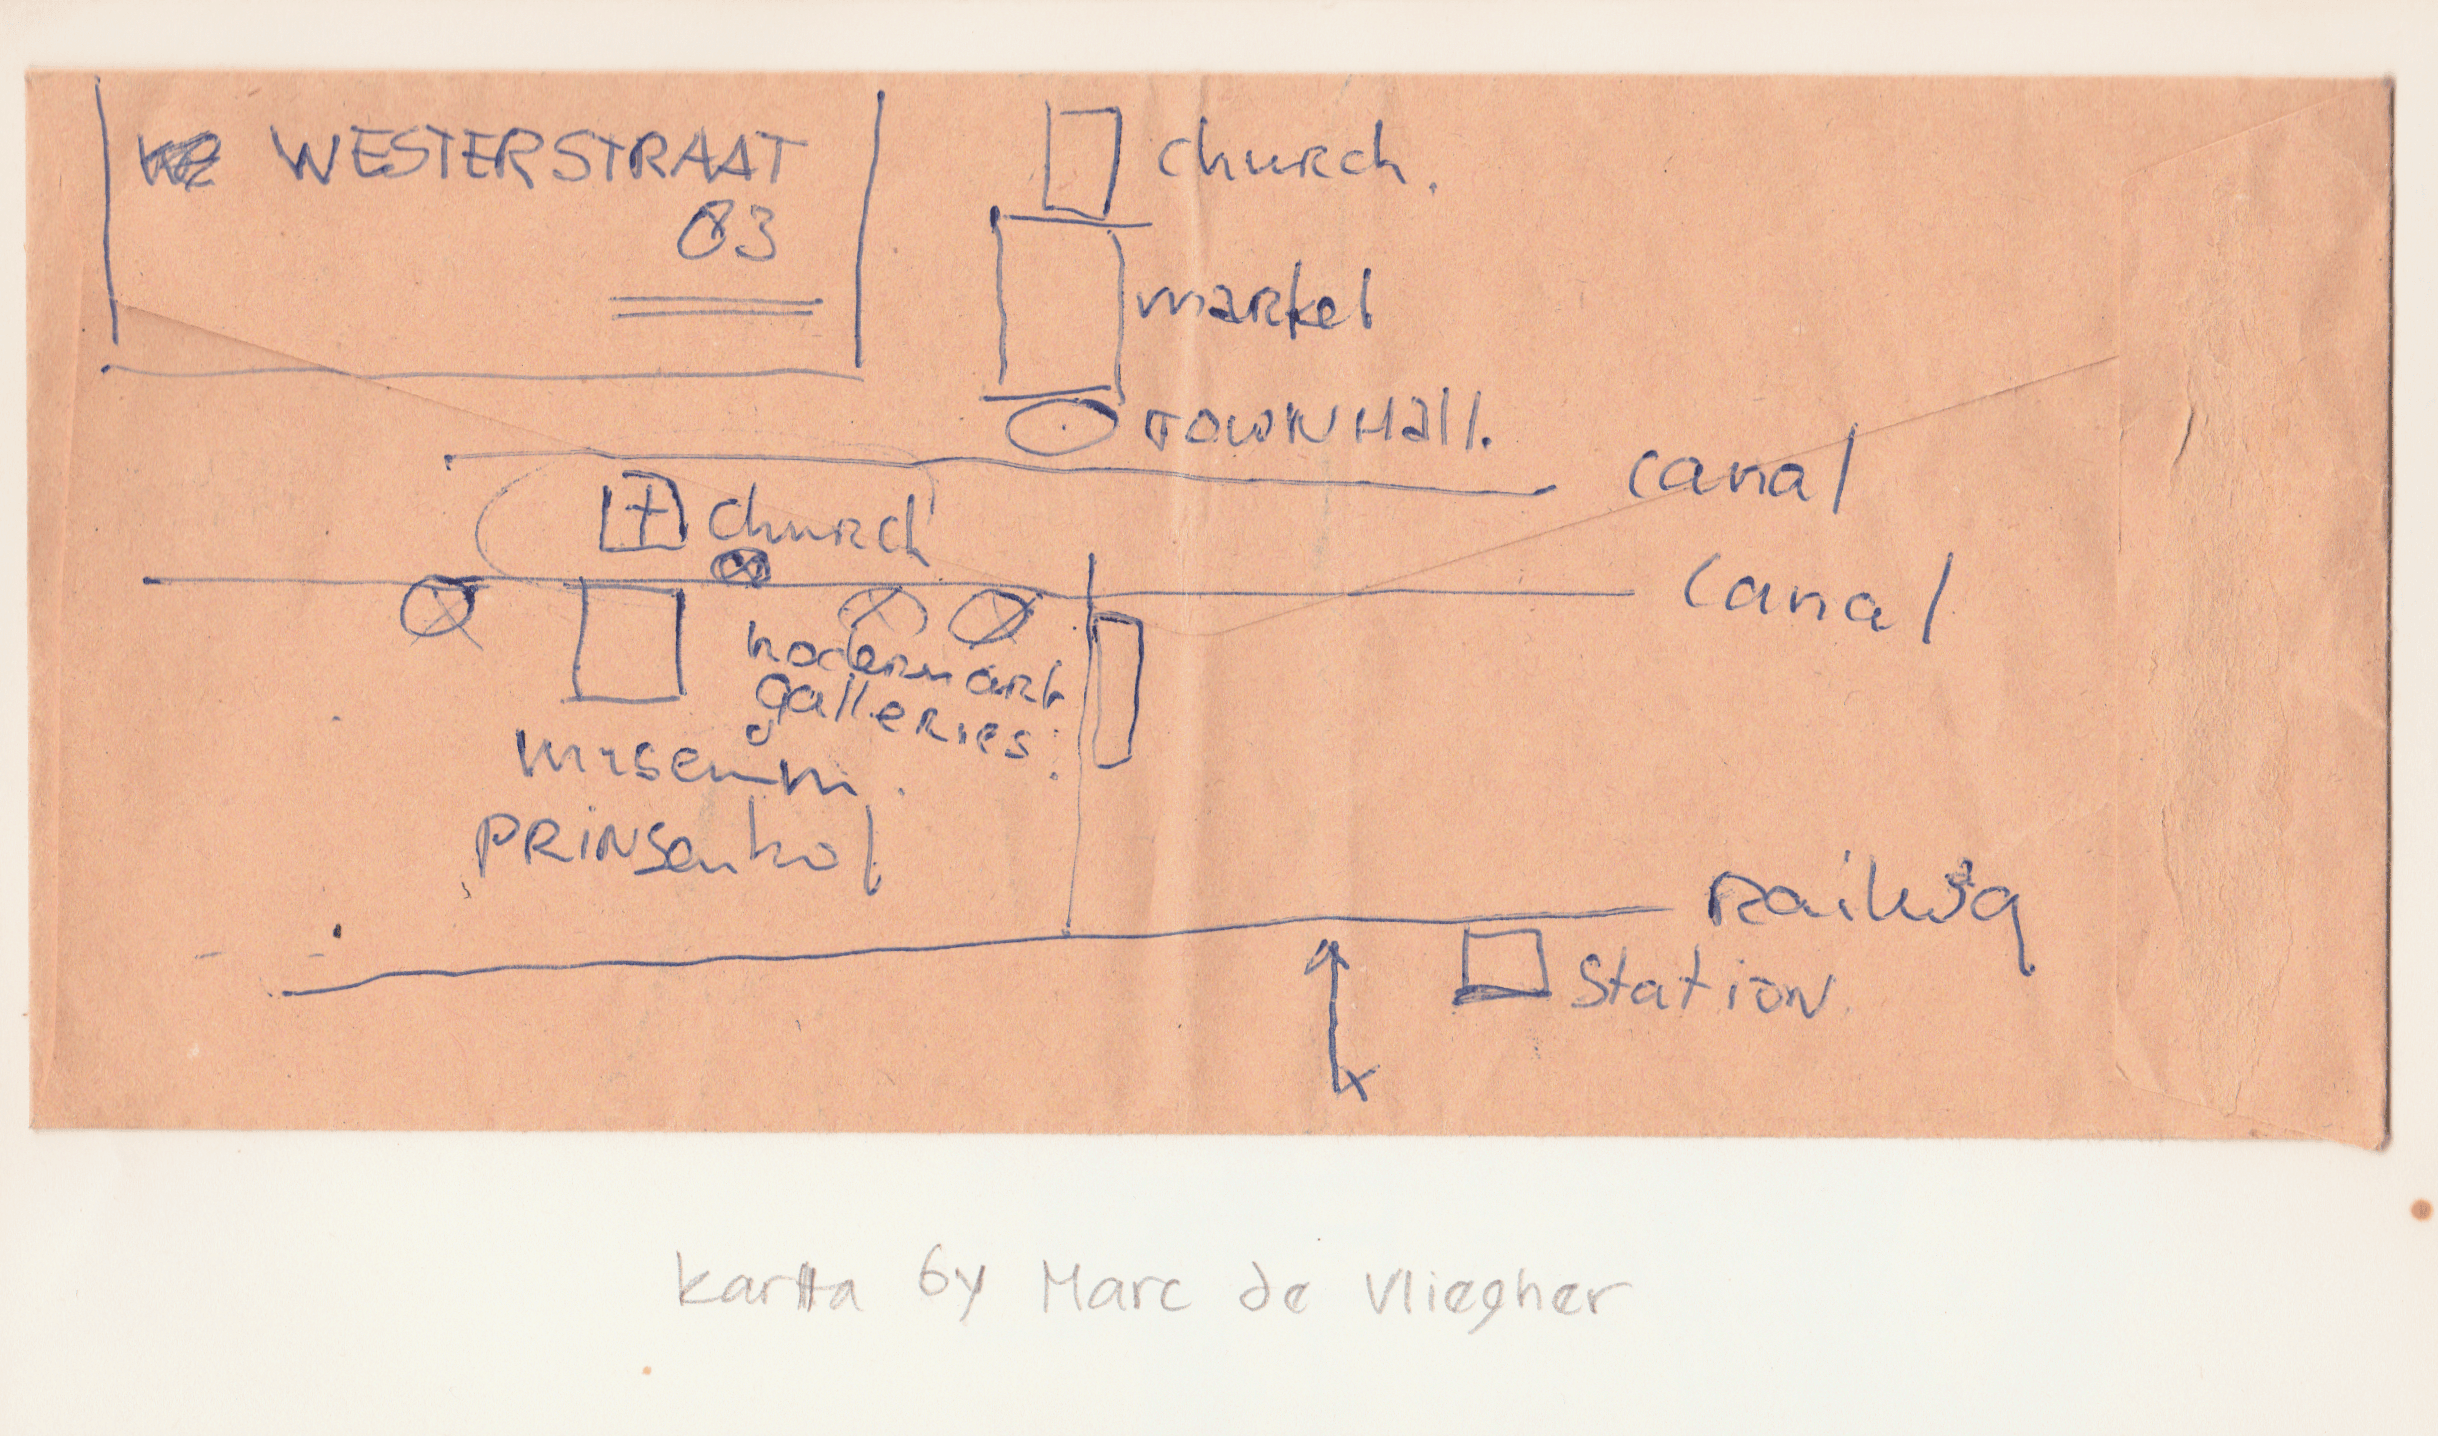 WESTERSTRAAT
83
church.
market
TOWNHall.
canal
church
canal
modern art
galleries.
museum.
PRINSenhof
Railway
Station.
kartta by Marc de Vliegher